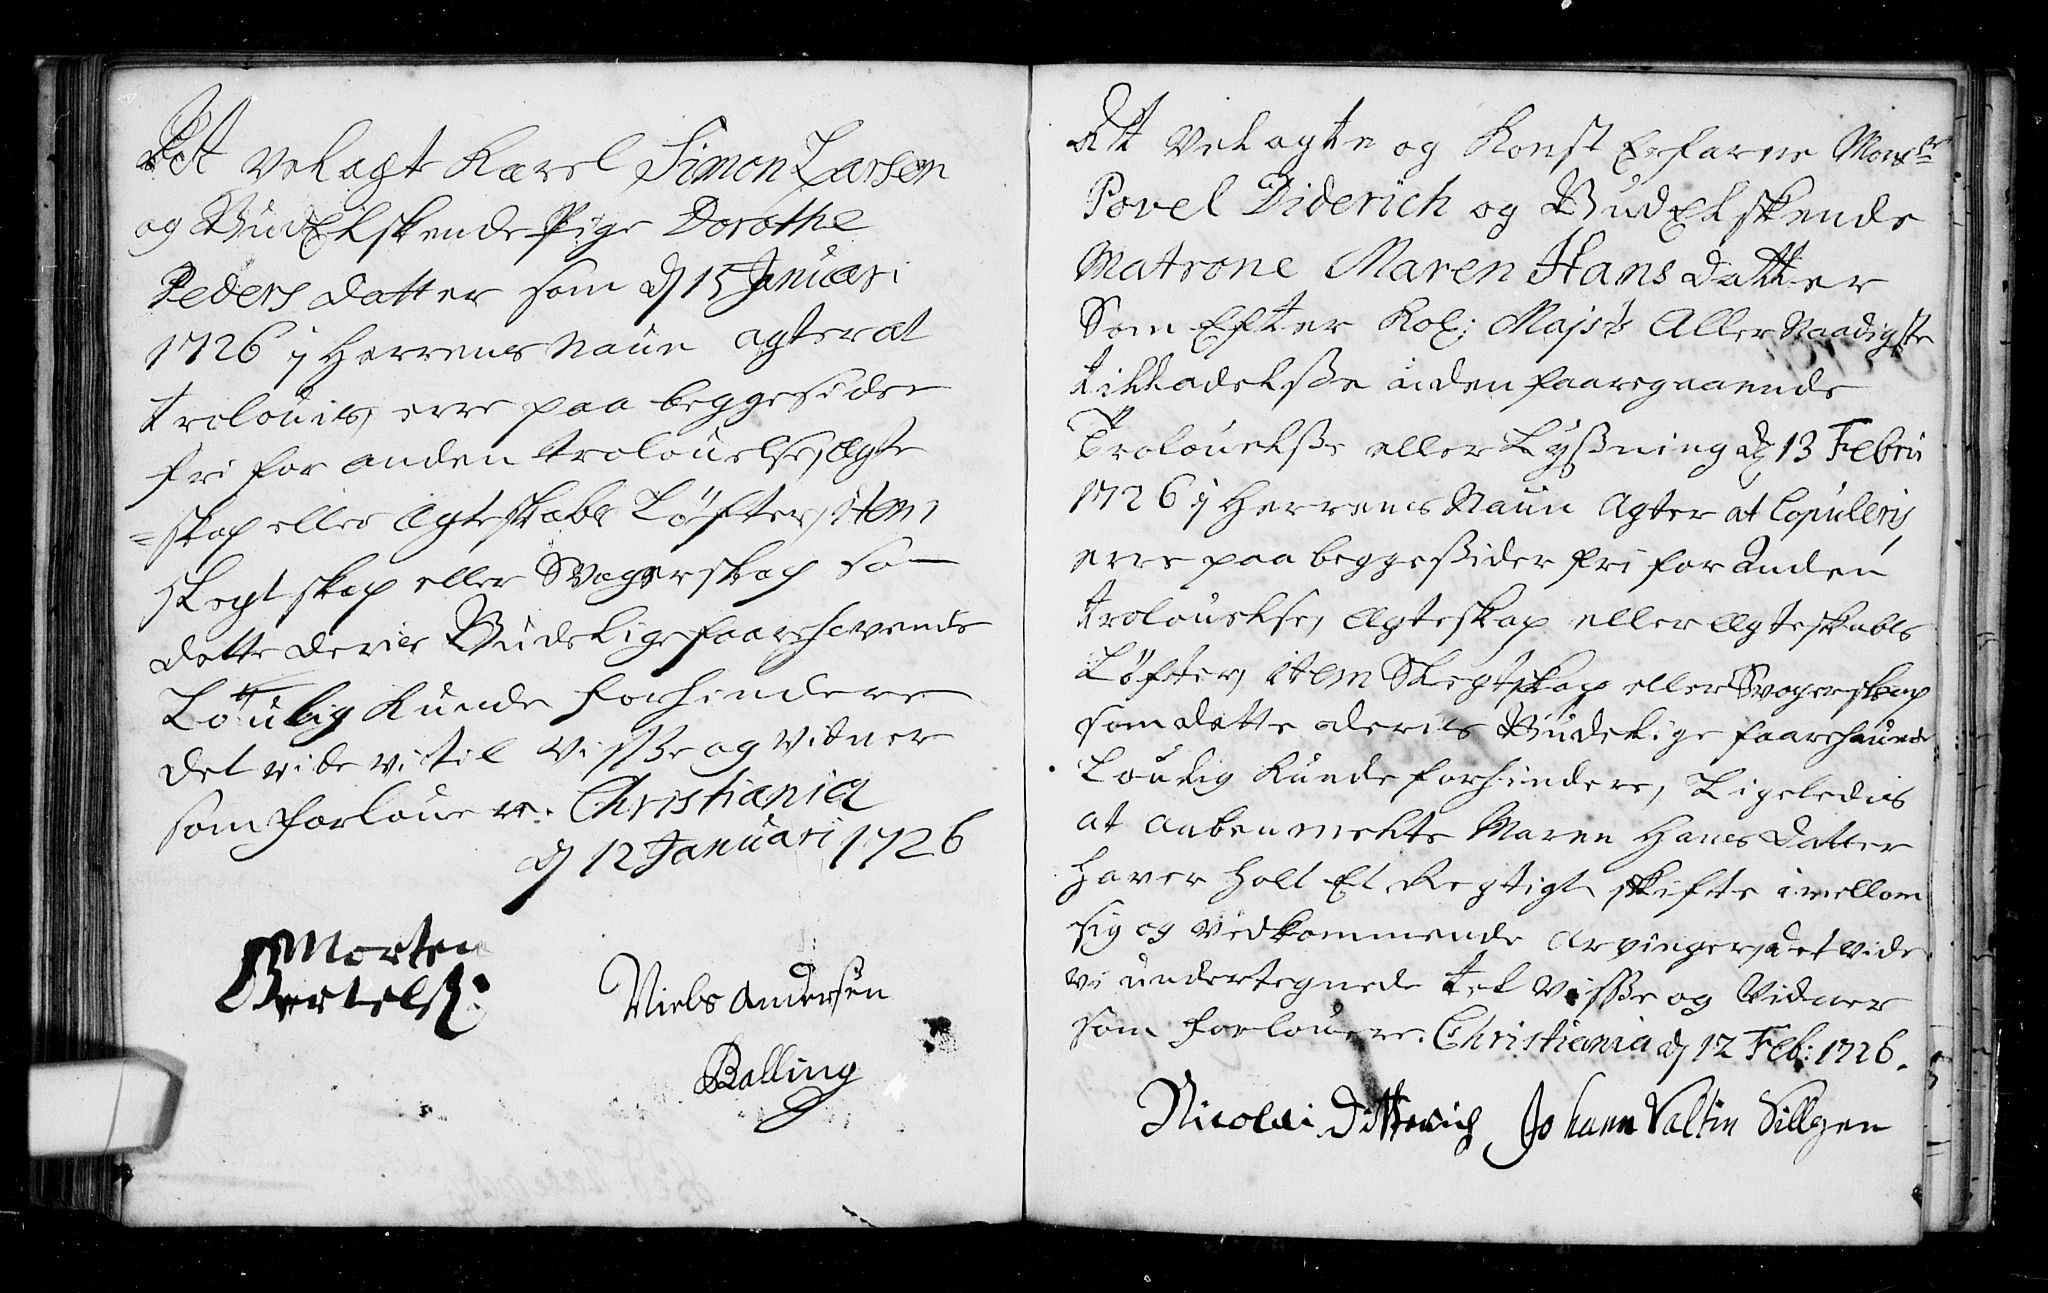 At velagt Karel Simon Larsen
og GudElskende Pige Dorothe
Peders datter som d 15 Januari
1726 j Herrens Naun agter at
troloüis, erre paa begge sider
fri for anden troloüelse, Ægte
=skap eller Ægteskabs Løfter, item
Slegtskap eller Svogerskap som
dette deris Gudelige faarehavende
Loulig kunde forhindere
det vide vi til visße og vidner
som forlouere. Christiania
d 12 Januari 1726
Morten
Bertelß:
Niels Andersen
Balling
At Velagte og Konst Erfarne Monsr
Povel Diderich og GudElskende
Matrone Maren Hans datter
Som Efter Kol: Majsts Aller Naadigste
tilladelße uden faaregaaende
Troloüelße eller Lyßning d 13 Febru
1726 j Herrens Naun Agter at Copuleris,
erre paa begge ßider fri for Anden
troloüelse, Ægteskap eller Ægteskabs
Løfter, item Slegtskap eller Svogerskap
som dette deris Gudelige faarehauende
Loulig kunde forhindere, Ligeledis
at aaben melte Maren Hans Datter
haver holt Et Regtigt skifte imellom
sig og vedkommende arvinger, det vide
vi undertegnede tel visße og Vidner
som forlouere. Christiania d 12 Feb: 1726.
Nicolai Ditterich Johann Valtin Sillgen